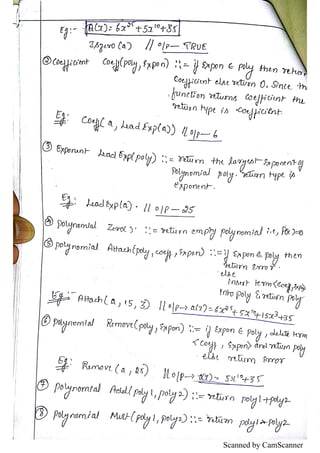 Eg:- A(x)= 6x²⁵+5x¹⁰+35
Iszero(a) // o/p— TRUE
② Coefficient Coeff(poly, Expon) ::= if Expon ∈ poly then return
Coefficient else return 0. Since the
function returns coefficient the
return type is coefficient.
Eg: Coeff(a, Lead Exp(a)) // o/p—6
③ Exponent Lead Exp(poly) ::= return the largest Exponent of
Polynomial poly. return type is
exponent.
Eg: Lead Exp(a). // o/p—25
④ polynomial Zero() ::= return empty polynomial i.e, P(x)=0
⑤ polynomial Attach(poly, coeff, Expon) ::= if Expon ∈ poly then
return Error
else
insert term <coeff, Exp>
into poly & return poly
Eg:- Attach(a, 15, 3) // o/p→ a(x)= 6x²⁵+5x¹⁰+15x³+35
⑥ polynomial Remove(poly, Expon) ::= if Expon ∈ poly, delete term
<Coeff, Expon> and return poly
else return Error
Eg: Remove (a, 25) // o/p→ a(x)= 5x¹⁰+35
⑦ polynomial Add(poly1, poly2) ::= return poly1+poly2
⑧ polynomial Mult(poly1, poly2) ::= return poly1*poly2
Scanned by CamScanner